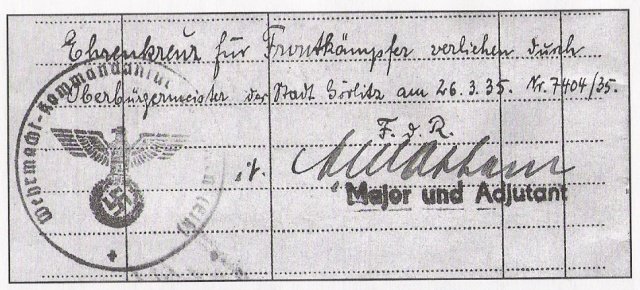 Ehrenkreuz für Frontkämpfer verliehen durch
Oberbürgermeister der Stadt Görlitz am 26.3.35. Nr. 7404/35.
F. d. R.
Major und Adjutant
Wehrmacht-Kommandantur